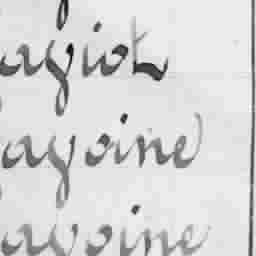 agiot
agoine
agoine